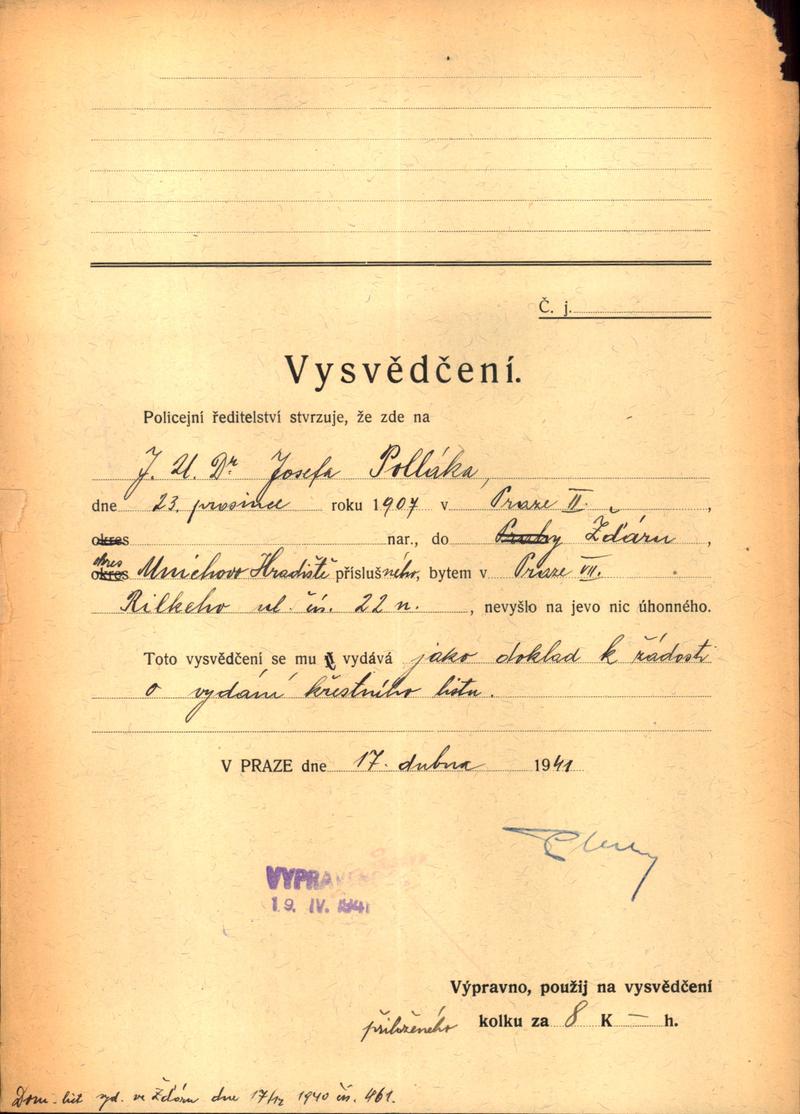 Č. j.
Vysvědčení.
Policejní ředitelství stvrzuje, že zde na
J. U. Dr Josefa Polláka,
dne 23. prosince roku 1907 v Praze II. ,
okres nar., do Prahy Žďáru ,
okres
okres Mnichovo Hradiště příslušného, bytem v Praze VII.
Rilkeho ul. čís. 22 n. , nevyšlo na jevo nic úhonného.
Toto vysvědčení se mu vydává jako doklad k žádosti
o vydání křestního listu.
V PRAZE dne 17. dubna 1941
VYPRAVENO
19. IV. 1941
Výpravno, použij na vysvědčení
přiloženého kolku za 8 K — h.
Dom. list vyd. ve Žďáru dne 17/IX 1940 čís. 461.